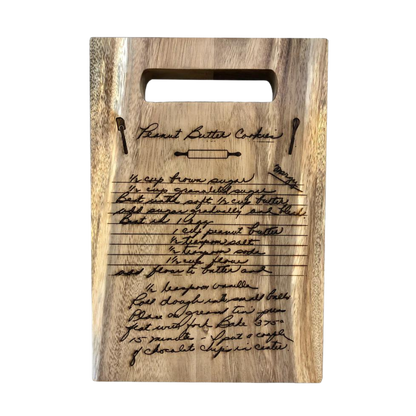 Peanut Butter Cookies
½ cup brown sugar
½ cup granulated sugar
Beat with soft ½ cup butter
add sugar gradually and
Beat in 1 egg
1 cup peanut butter
½ teaspoon salt
½ teaspoon soda
1½ cup flour
add flour to butter and
½ teaspoon vanilla
Roll dough into small balls
Place on greased tin pan
flat with fork Bake 350
15 minutes - put a couple
of chocolate chips in center